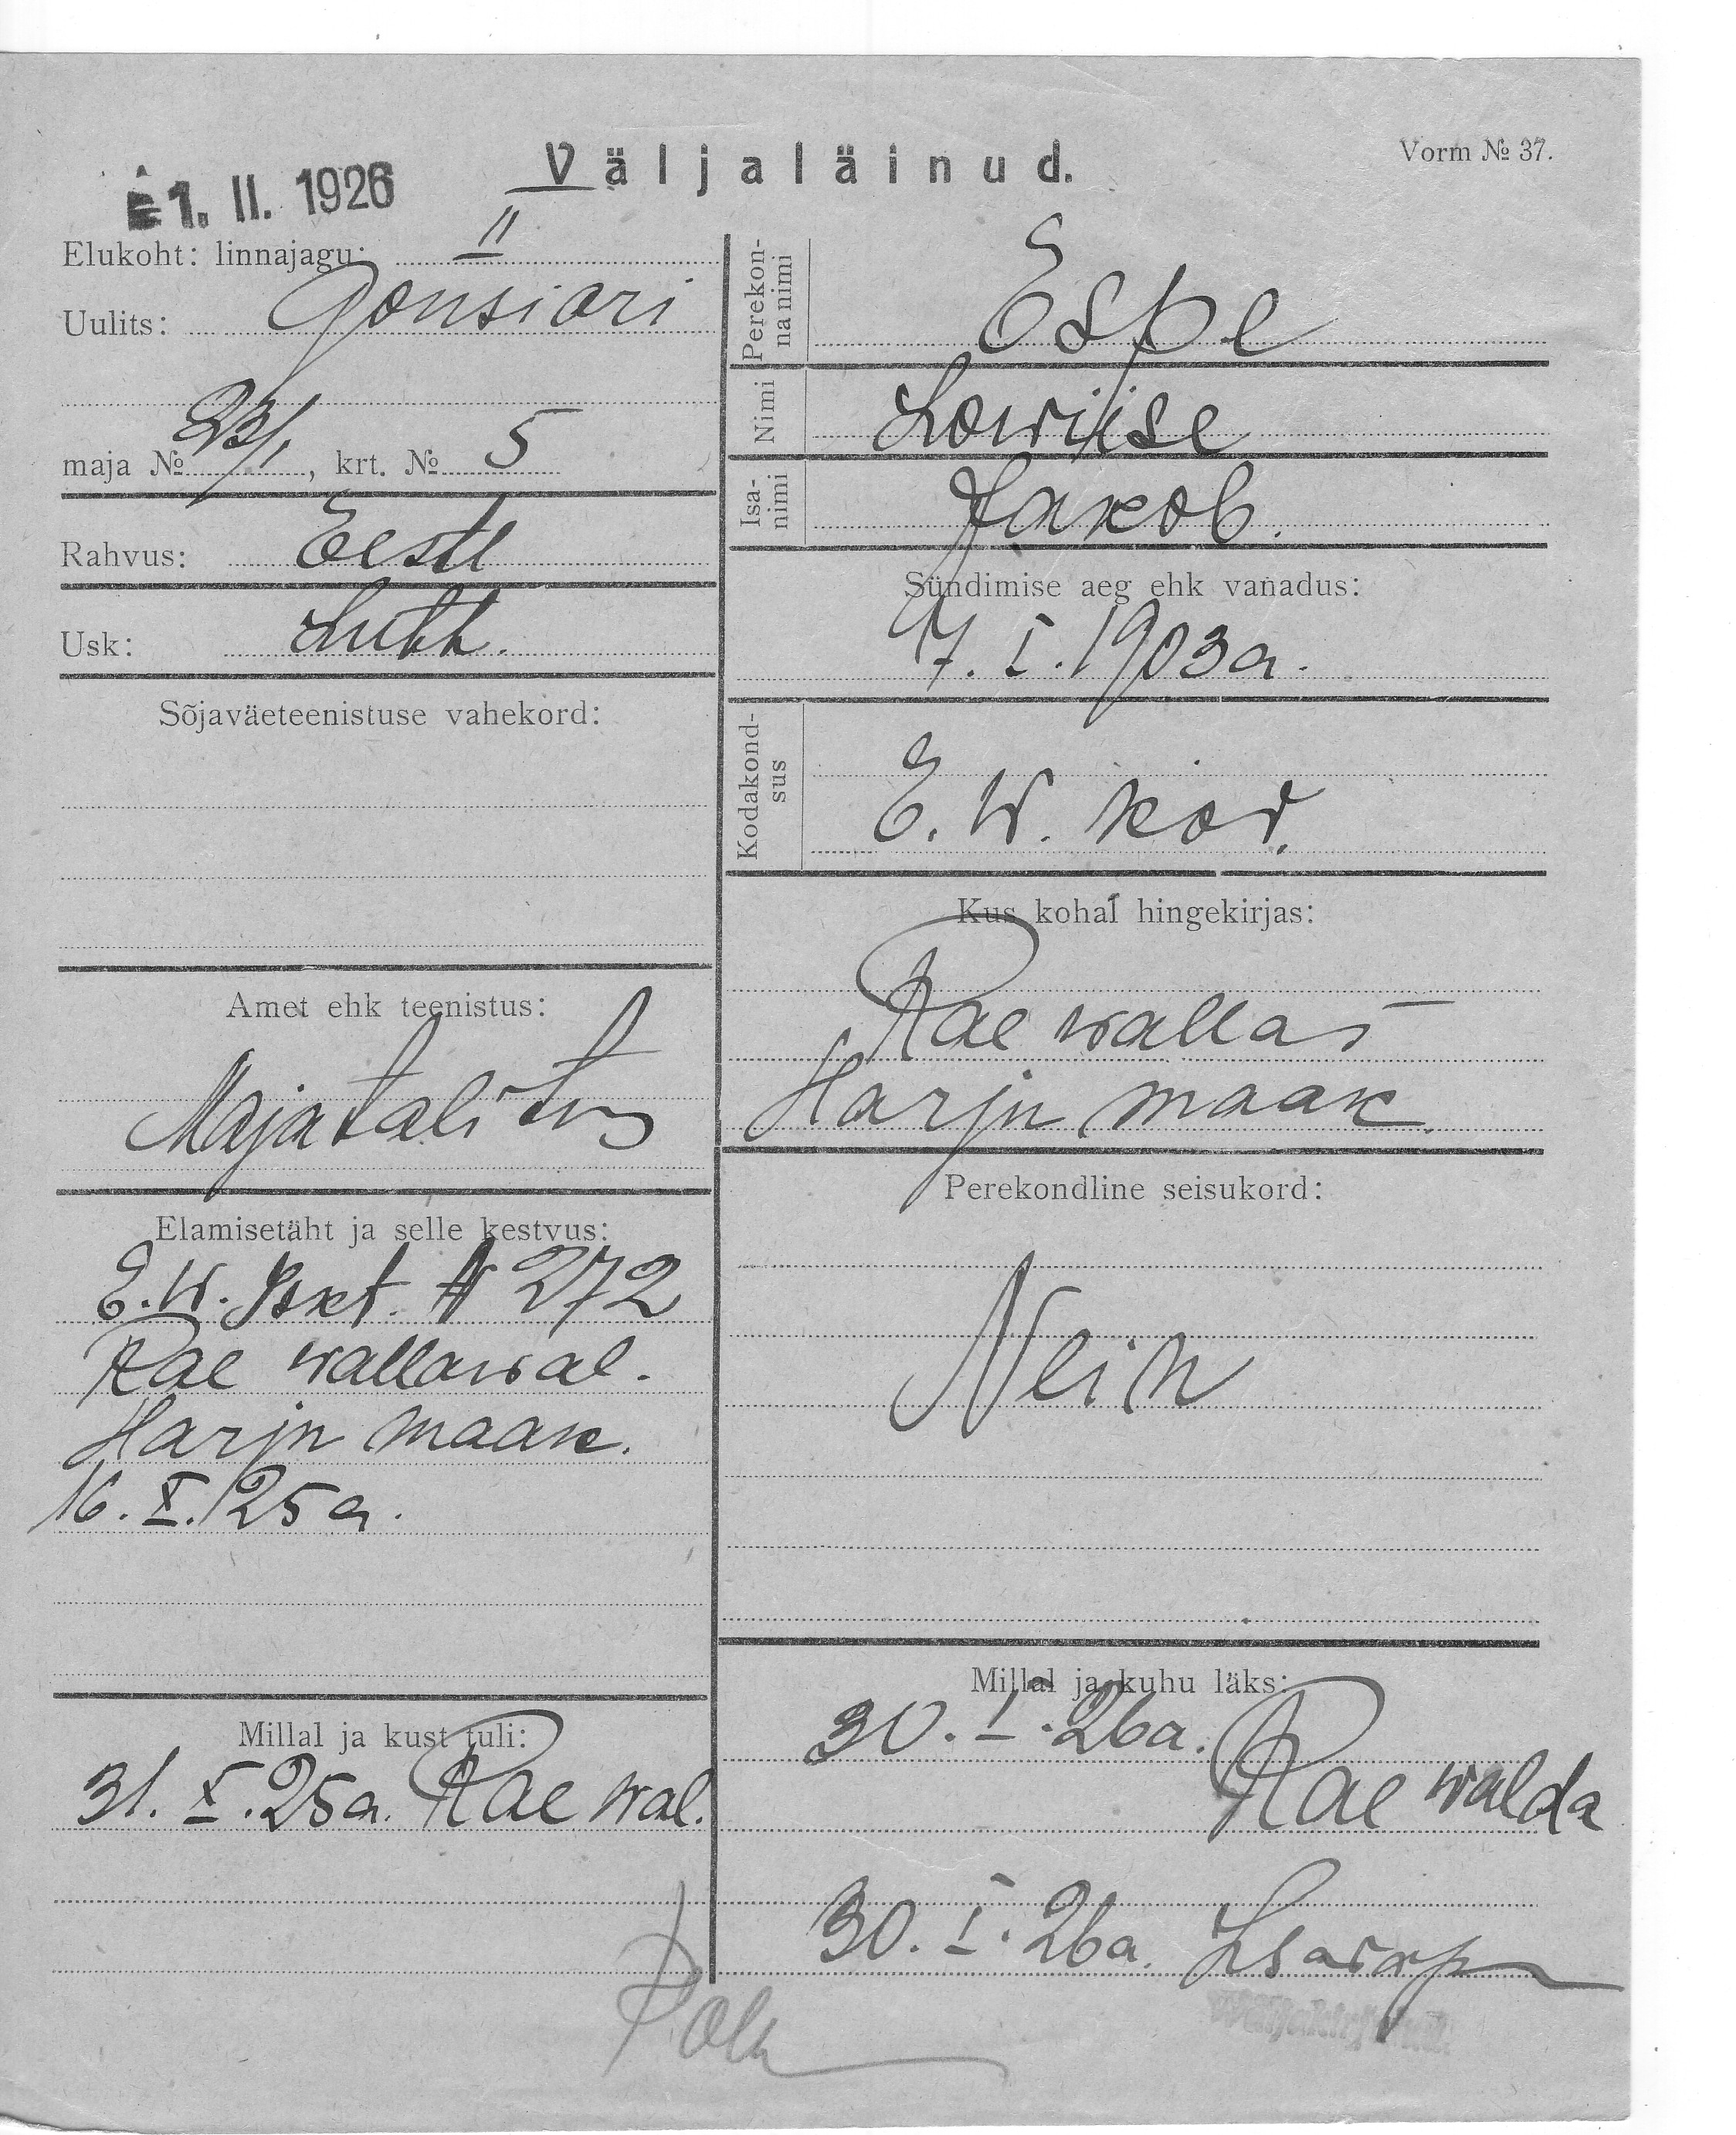 Vorm № 37.
Väljaläinud.
1. II. 1926
Elukoht: linnajagu: II
Uulits: Gonsiori
maja № 23/1, krt. № 5
Rahvus: Eesti
Usk: Luth.
Sõjaväeteenistuse vahekord:
Amet ehk teenistus:
Majatalitus
Elamisetäht ja selle kestvus:
E.W. Iskt. N 272
Rae wallawal.
Harju maak.
16. X. 25 a.
Millal ja kust tuli:
31. X. 25a. Rae wal.
Perekon-
na nimi
Espe
Nimi Lowiise
Isa-
nimi
Jakob.
Sündimise aeg ehk vanadus:
7. I. 1903 a.
Kodakond-
sus
E. W. kod.
Kus kohal hingekirjas:
Rae wallas
Harju maak.
Perekondline seisukord:
Neiu
Millal ja kuhu läks:
30. I. 26a.
Rae walda
30. I. 26a.